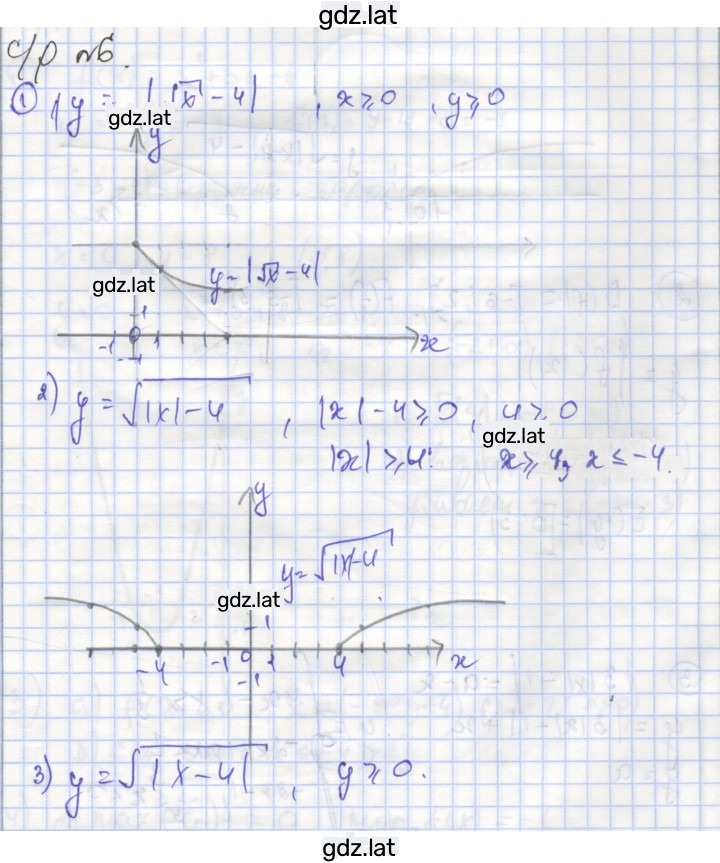 gdz.lat
с/р №6.
① 1) y = |√x - 4| , x ⩾ 0 , y ⩾ 0
gdz.lat
y
y = |√x - 4|
gdz.lat
1
-1 0 1 x
-1
2) y = √|x| - 4 , |x| - 4 ⩾ 0, y ⩾ 0
gdz.lat
|x| ⩾ 4. x ⩾ 4, x ≤ -4.
y
y = √|x| - 4
gdz.lat
1
-4 -1 0 1 4 x
-1
3) y = √|x - 4| , y ⩾ 0.
gdz.lat